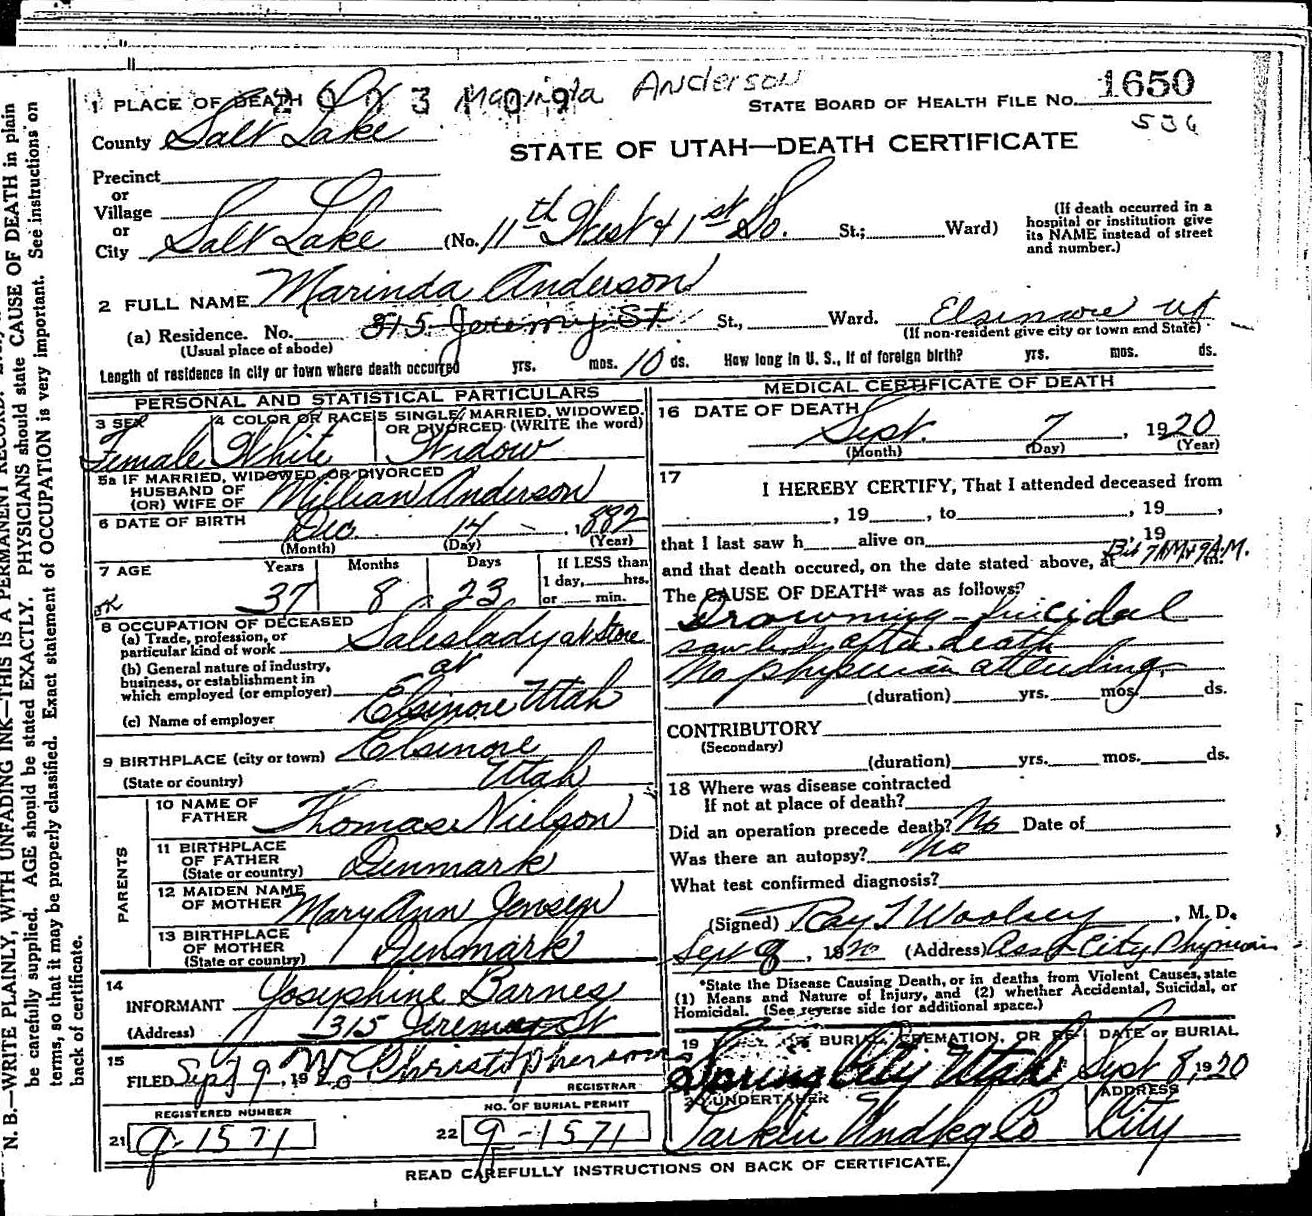 Marinda Anderson
2 0 0 3 1 0 9
1 PLACE OF DEATH
STATE BOARD OF HEALTH FILE No. 1650
536
County Salt Lake
STATE OF UTAH—DEATH CERTIFICATE
Precinct
or
Village
or
City Salt Lake (No. 11th West & 1st So. St.; Ward)
(If death occurred in a
hospital or institution give
its NAME instead of street
and number.)
2 FULL NAME Marinda Anderson
(a) Residence. No. 315 Jeremy St St., Ward. Elsinore Ut
(Usual place of abode)
(If non-resident give city or town and State)
Length of residence in city or town where death occurred yrs. mos. 10 ds. How long in U. S., if of foreign birth? yrs. mos. ds.
PERSONAL AND STATISTICAL PARTICULARS
3 SEX Female
4 COLOR OR RACE White
5 SINGLE, MARRIED, WIDOWED,
OR DIVORCED (WRITE the word)
Widow
5a IF MARRIED, WIDOWED, OR DIVORCED
HUSBAND OF
(OR) WIFE OF Millian Anderson
6 DATE OF BIRTH Dec 14 , 1882
(Month) (Day) (Year)
7 AGE Years Months Days If LESS than
1 day, hrs.
or min.
37 8 23
8 OCCUPATION OF DECEASED
(a) Trade, profession, or
particular kind of work Saleslady at store
(b) General nature of industry,
business, or establishment in
which employed (or employer) at
(c) Name of employer Elsinore Utah
9 BIRTHPLACE (city or town) Elsinore
(State or country) Utah
PARENTS
10 NAME OF
FATHER Thomas Nielson
11 BIRTHPLACE
OF FATHER
(State or country) Denmark
12 MAIDEN NAME
OF MOTHER Mary Ann Jensen
13 BIRTHPLACE
OF MOTHER
(State or country) Denmark
14
INFORMANT Josephine Barnes
(Address) 315 Jeremy St
15
FILED Sept 9, 1920 Christopherson
REGISTRAR
REGISTERED NUMBER
21 9-1571
NO. OF BURIAL PERMIT
22 9-1571
MEDICAL CERTIFICATE OF DEATH
16 DATE OF DEATH
Sept. 7 , 1920
(Month) (Day) (Year)
17
I HEREBY CERTIFY, That I attended deceased from
, 19 , to , 19 ,
that I last saw h alive on 19
and that death occured, on the date stated above, at Bet 7AM & 9A.M. m.
The CAUSE OF DEATH* was as follows:
Drowning - suicidal
saw body after death
No physician attending
(duration) yrs. mos. ds.
CONTRIBUTORY
(Secondary)
(duration) yrs. mos. ds.
18 Where was disease contracted
If not at place of death?
Did an operation precede death? No Date of
Was there an autopsy? No
What test confirmed diagnosis?
(Signed) Ray T Woolsey , M. D.
Sept 9, 1920 (Address) Asst City Physician
*State the Disease Causing Death, or in deaths from Violent Causes, state
(1) Means and Nature of Injury, and (2) whether Accidental, Suicidal, or
Homicidal. (See reverse side for additional space.)
19 BURIAL, CREMATION, OR RE- DATE OF BURIAL
Spring City Utah Sept 8, 1920
20 UNDERTAKER ADDRESS
Larkin Undtkg Co City
READ CAREFULLY INSTRUCTIONS ON BACK OF CERTIFICATE.
N. B.—WRITE PLAINLY, WITH UNFADING INK—THIS IS A PERMANENT RECORD.
be carefully supplied. AGE should be stated EXACTLY. PHYSICIANS should state CAUSE OF DEATH in plain
terms, so that it may be properly classified. Exact statement of OCCUPATION is very important. See instructions on
back of certificate.